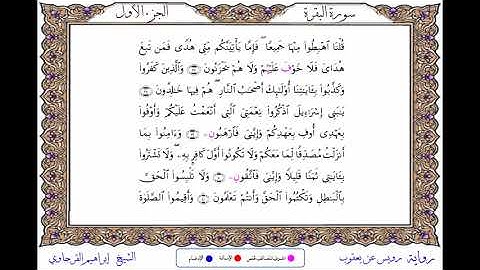 سورة البقرة
الجزء الأول
قُلْنَا ٱهْبِطُوا۟ مِنْهَا جَمِيعًا ۖ فَإِمَّا يَأْتِيَنَّكُم مِّنِّى هُدًى فَمَن تَبِعَ
هُدَاىَ فَلَا خَوْفَ عَلَيْهُمْ وَلَا هُمْ يَحْزَنُونَ وَٱلَّذِينَ كَفَرُوا۟
وَكَذَّبُوا۟ بِـَٔايَـٰتِنَا أُو۟لَـٰٓئِكَ أَصْحَـٰبُ ٱلنَّارِ ۖ هُمْ فِيهَا خَـٰلِدُونَ
يَـٰبَنِى إِسْرَٰٓءِيلَ ٱذْكُرُوا۟ نِعْمَتِىَ ٱلَّتِى أَنْعَمْتُ عَلَيْكُمْ وَأَوْفُوا۟
بِعَهْدِى أُوفِ بِعَهْدِكُمْ وَإِيَّـٰىَ فَٱرْهَبُونِ وَءَامِنُوا۟ بِمَا
أَنزَلْتُ مُصَدِّقًا لِّمَا مَعَكُمْ وَلَا تَكُونُوٓا۟ أَوَّلَ كَافِرٍ بِهِ ۖ وَلَا تَشْتَرُوا۟
بِـَٔايَـٰتِى ثَمَنًا قَلِيلًا وَإِيَّـٰىَ فَٱتَّقُونِ وَلَا تَلْبِسُوا۟ ٱلْحَقَّ
بِٱلْبَـٰطِلِ وَتَكْتُمُوا۟ ٱلْحَقَّ وَأَنتُمْ تَعْلَمُونَ وَأَقِيمُوا۟ ٱلصَّلَوٰةَ
رواية رويس عن يعقوب
الإمالة
الإدغام
الشيخ إبراهيم القرجاوي